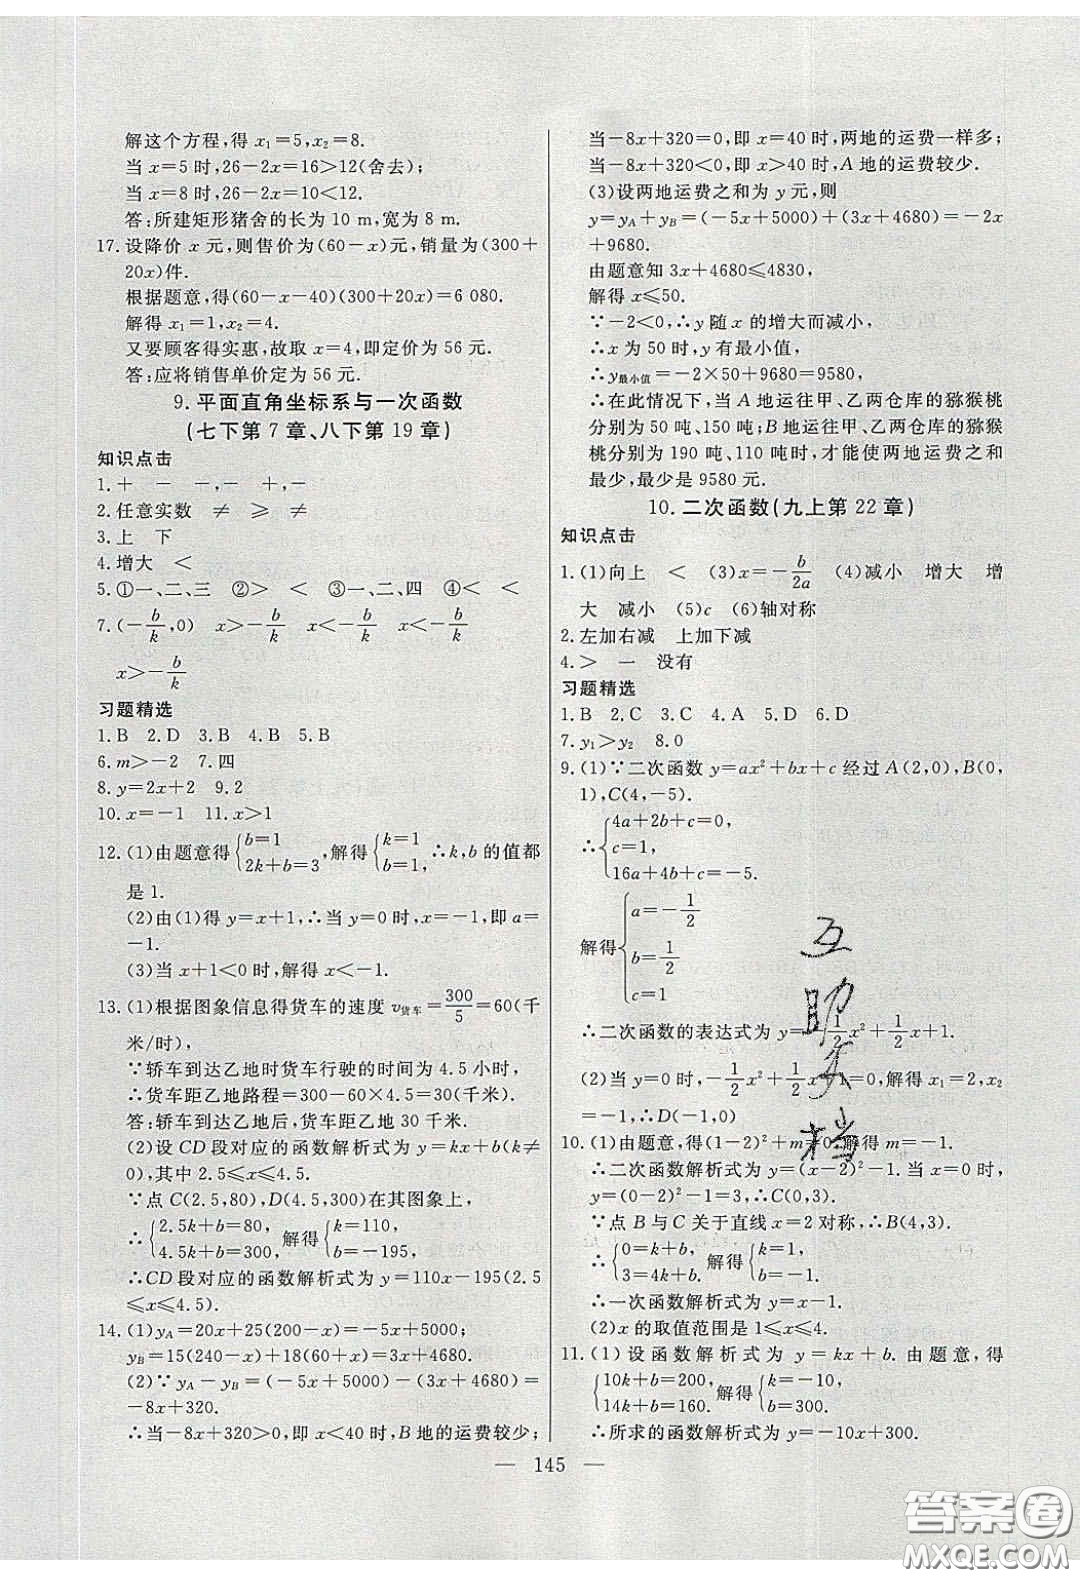 解这个方程,得 x₁=5,x₂=8.
当 x=5 时,26-2x=16>12(舍去);
当 x=8 时,26-2x=10<12.
答:所建矩形猪舍的长为 10 m,宽为 8 m.
17.设降价 x 元,则售价为(60-x)元,销量为(300+
20x)件.
根据题意,得(60-x-40)(300+20x)=6 080.
解得 x₁=1,x₂=4.
又要顾客得实惠,故取 x=4,即定价为 56 元.
答:应将销售单价定为 56 元.
9.平面直角坐标系与一次函数
(七下第 7 章、八下第 19 章)
知识点击
1.+ - -,- +,-
2.任意实数 ≠ ≥ ≠
3.上 下
4.增大 <
5.①一、二、三 ②> < ③一、二、四 ④< <
7.(-b/k,0) x>-b/k x<-b/k x<-b/k
x>-b/k
习题精选
1.B 2.D 3.B 4.B 5.B
6.m>-2 7.四
8.y=2x+2 9.2
10.x=-1 11.x>1
12.(1)由题意得{b=1 2k+b=3,解得{k=1 b=1,∴k,b 的值都
是 1.
(2)由(1)得 y=x+1,∴当 y=0 时,x=-1,即 a=
-1.
(3)当 x+1<0 时,解得 x<-1.
13.(1)根据图象信息得货车的速度 v货车=300/5=60(千
米/时),
∵轿车到达乙地时货车行驶的时间为 4.5 小时,
∴货车距乙地路程=300-60×4.5=30千米.
答:轿车到达乙地后,货车距乙地 30 千米.
(2)设 CD 段对应的函数解析式为 y=kx+b(k≠
0),其中 2.5≤x≤4.5.
∵点 C(2.5,80),D(4.5,300)在其图象上,
∴{2.5k+b=80, 4.5k+b=300, 解得{k=110, b=-195,
∴CD段对应的函数解析式为 y=110x-195(2.5
≤x≤4.5).
14.(1)yA=20x+25(200-x)=-5x+5000;
yB=15(240-x)+18(60+x)=3x+4680.
(2)∵yA-yB=(-5x+5000)-(3x+4680)=
-8x+320.
∴当-8x+320>0,即 x<40 时,B 地的运费较少;
当-8x+320=0,即 x=40 时,两地的运费一样多;
当-8x+320<0,即 x>40 时,A 地的运费较少.
(3)设两地运费之和为 y 元,则
y=yA+yB=(-5x+5000)+(3x+4680)=-2x
+9680.
由题意知 3x+4680≤4830,
解得 x≤50.
∵-2<0,∴y 随 x 的增大而减小,
∴x 为 50 时,y有最小值,
∴y最小值=-2×50+9680=9580,
∴在此情况下,当 A 地运往甲、乙两仓库的猕猴桃
分别为 50 吨、150 吨;B 地运往甲、乙两仓库的猕猴
桃分别为 190 吨、110 吨时,才能使两地运费之和
最少,最少是 9580 元.
10.二次函数(九上第 22 章)
知识点击
1.(1)向上 < (3)x=-b/2a (4)减小 增大 增
大 减小 (5)c (6)轴对称
2.左加右减 上加下减
4.> 一 没有
习题精选
1.B 2.C 3.C 4.A 5.D 6.D
7.y₁>y₂ 8.0
9.(1)∵二次函数 y=ax²+bx+c 经过 A(2,0),B(0,
1),C(4,-5).
∴{4a+2b+c=0, c=1, 16a+4b+c=-5.
解得{a=-1/2 b=1/2 c=1
∴二次函数的表达式为 y=-1/2x²+1/2x+1.
(2)当 y=0 时,-1/2x²+1/2x+1=0,解得 x₁=2,x₂
=-1,∴D(-1,0)
10.(1)由题意,得(1-2)²+m=0,解得 m=-1.
∴二次函数解析式为 y=(x-2)²-1.当 x=0 时,
y=(0-2)²-1=3,∴C(0,3).
∵点 B 与 C 关于直线 x=2 对称,∴B(4,3).
∴{0=k+b, 3=4k+b, 解得{k=1, b=-1.
∴一次函数解析式为 y=x-1.
(2)x 的取值范围是 1≤x≤4.
11.(1)设函数解析式为 y=kx+b.由题意,得
{10k+b=200, 14k+b=160. 解得{k=-10, b=300.
∴所求的函数解析式为 y=-10x+300.
— 145 —
互助文档
答案圈
MXQE.COM